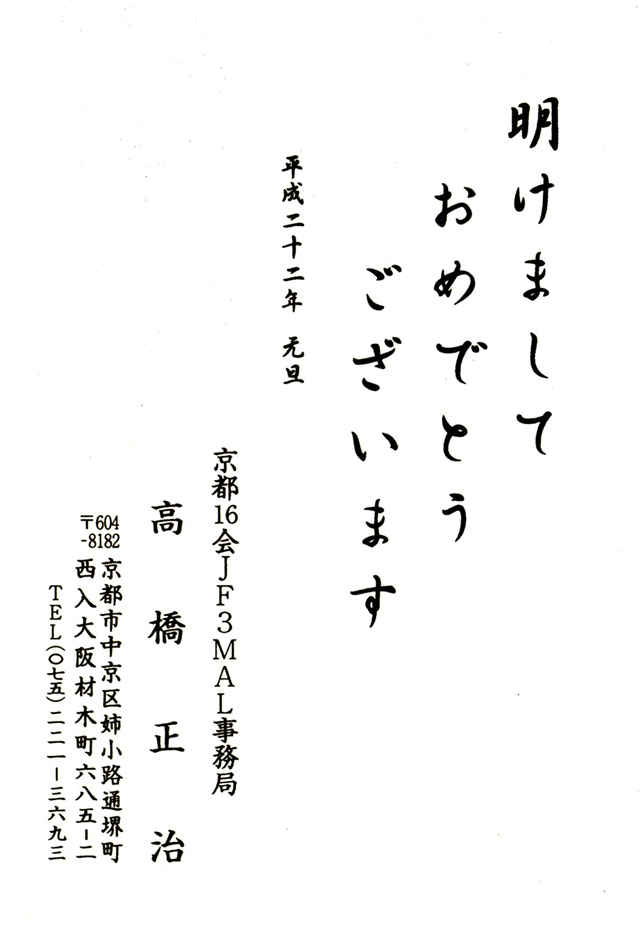 明けまして
おめでとう
ございます
平成二十二年 元旦
京都16会JF3MAL事務局
高橋正治
〒604-8182
京都市中京区姉小路通堺町
西入大阪材木町六八五-二
TEL(〇七五)二二一-三六九三